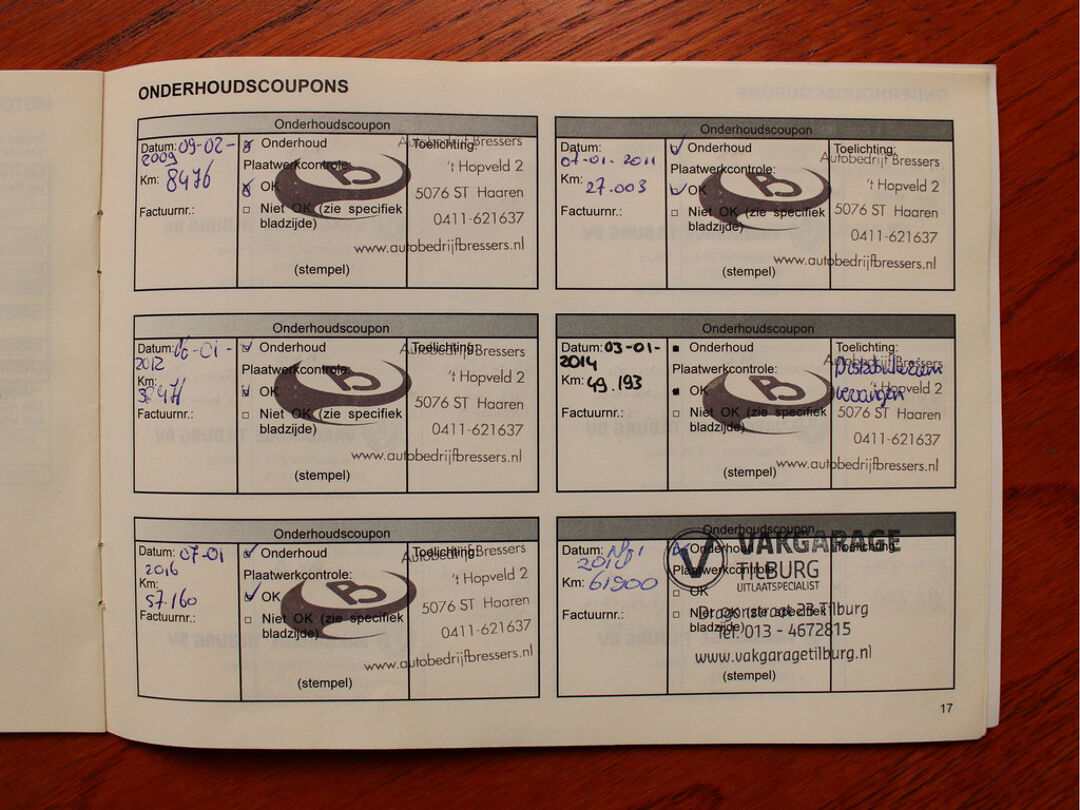 ONDERHOUDSCOUPONS
Onderhoudscoupon
Datum: 09-02-
2009
Km: 8476
Factuurnr.:
Onderhoud
Plaatwerkcontrole:
OK
Niet OK (zie specifiek
bladzijde)
(stempel)
Toelichting:
Autobedrijf Bressers
't Hopveld 2
5076 ST Haaren
0411-621637
www.autobedrijfbressers.nl
Onderhoudscoupon
Datum:
07-01-2011
Km: 27.003
Factuurnr.:
Onderhoud
Plaatwerkcontrole:
OK
Niet OK (zie specifiek
bladzijde)
(stempel)
Toelichting:
Autobedrijf Bressers
't Hopveld 2
5076 ST Haaren
0411-621637
www.autobedrijfbressers.nl
Onderhoudscoupon
Datum: 06-01-
2012
Km:
38471
Factuurnr.:
Onderhoud
Plaatwerkcontrole:
OK
Niet OK (zie specifiek
bladzijde)
(stempel)
Toelichting:
Autobedrijf Bressers
't Hopveld 2
5076 ST Haaren
0411-621637
www.autobedrijfbressers.nl
Onderhoudscoupon
Datum: 03-01-
2014
Km: 49.193
Factuurnr.:
Onderhoud
Plaatwerkcontrole:
OK
Niet OK (zie specifiek
bladzijde)
(stempel)
Toelichting:
Autobedrijf Bressers
't Hopveld 2
5076 ST Haaren
0411-621637
www.autobedrijfbressers.nl
Onderhoudscoupon
Datum: 07-01
2016
Km:
57.160
Factuurnr.:
Onderhoud
Plaatwerkcontrole:
OK
Niet OK (zie specifiek
bladzijde)
(stempel)
Toelichting:
Autobedrijf Bressers
't Hopveld 2
5076 ST Haaren
0411-621637
www.autobedrijfbressers.nl
Onderhoudscoupon
Datum:
2018
Km: 61900
Factuurnr.:
Onderhoud
Plaatwerkcontrole:
OK
Niet OK (zie specifiek
bladzijde)
(stempel)
Toelichting:
VAKGARAGE
TILBURG
UITLAATSPECIALIST
Tel. 013 - 4672815
www.vakgaragetilburg.nl
17